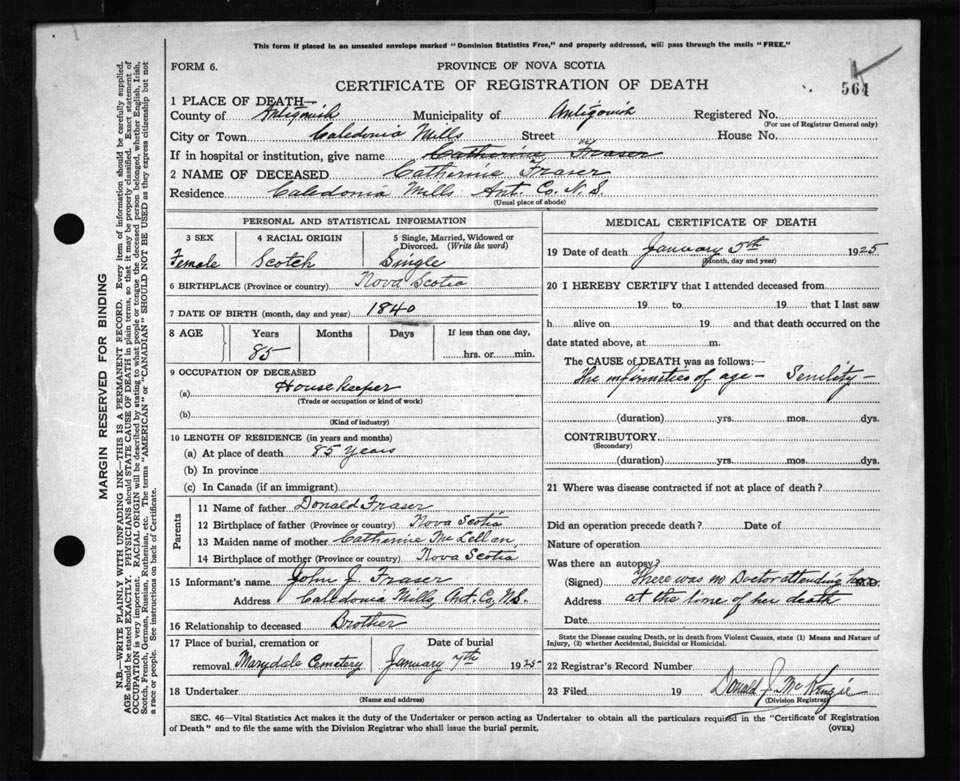 This form if placed in an unsealed envelope marked "Dominion Statistics Free," and properly addressed, will pass through the mails "FREE."
FORM 6.
PROVINCE OF NOVA SCOTIA
CERTIFICATE OF REGISTRATION OF DEATH
564
1 PLACE OF DEATH—
County of Antigonish Municipality of Antigonish Registered No.
(For use of Registrar General only)
City or Town Caledonia Mills Street House No.
If in hospital or institution, give name Catherine Fraser
2 NAME OF DECEASED Catherine Fraser
Residence Caledonia Mills Ant. Co. N.S.
(Usual place of abode)
PERSONAL AND STATISTICAL INFORMATION
3 SEX Female
4 RACIAL ORIGIN Scotch
5 Single, Married, Widowed or Divorced. (Write the word) Single
6 BIRTHPLACE (Province or country) Nova Scotia
7 DATE OF BIRTH (month, day and year) 1840
8 AGE Years Months Days If less than one day,
85 hrs. or min.
9 OCCUPATION OF DECEASED
(a) House Keeper
(Trade or occupation or kind of work)
(b)
(Kind of industry)
10 LENGTH OF RESIDENCE (in years and months)
(a) At place of death 85 years
(b) In province
(c) In Canada (if an immigrant)
Parents
11 Name of father Donald Fraser
12 Birthplace of father (Province or country) Nova Scotia
13 Maiden name of mother Catherine McLellan
14 Birthplace of mother (Province or country) Nova Scotia
15 Informant's name John J. Fraser
Address Caledonia Mills, Ant. Co, N.S.
16 Relationship to deceased Brother
17 Place of burial, cremation or Date of burial
removal Marydale Cemetery January 7th 1925
18 Undertaker
(Name and address)
MEDICAL CERTIFICATE OF DEATH
19 Date of death January 5th 1925
(Month, day and year)
20 I HEREBY CERTIFY that I attended deceased from
19 to 19 that I last saw
h alive on 19 and that death occurred on the
date stated above, at m.
The CAUSE of DEATH was as follows:—
The infirmities of age — Senility —
(duration) yrs. mos. dys.
CONTRIBUTORY
(Secondary)
(duration) yrs. mos. dys.
21 Where was disease contracted if not at place of death?
Did an operation precede death? Date of
Nature of operation
Was there an autopsy?
(Signed) There was no Doctor attending her M.D.
Address at the time of her death
Date
State the Disease causing Death, or in death from Violent Causes, state (1) Means and Nature of
Injury, (2) whether Accidental, Suicidal or Homicidal.
22 Registrar's Record Number
23 Filed 19 Donald J. McKenzie
(Division Registrar)
SEC. 46—Vital Statistics Act makes it the duty of the Undertaker or person acting as Undertaker to obtain all the particulars required in the "Certificate of Registration
of Death" and to file the same with the Division Registrar who shall issue the burial permit.
(OVER)
MARGIN RESERVED FOR BINDING
N.B.—WRITE PLAINLY WITH UNFADING INK—THIS IS A PERMANENT RECORD. Every item of information should be carefully supplied.
AGE should be stated EXACTLY. PHYSICIANS should STATE CAUSE OF DEATH in plain terms, so that it may be properly classified. Exact statement of
OCCUPATION is very important. RACIAL ORIGIN will be described by stating to what people or tongue the deceased person belonged, whether English, Irish,
Scotch, French, German, Russian, Ruthenian, etc. The terms "AMERICAN" or "CANADIAN" SHOULD NOT BE USED as they express citizenship but not
a race or people. See instructions on back of Certificate.